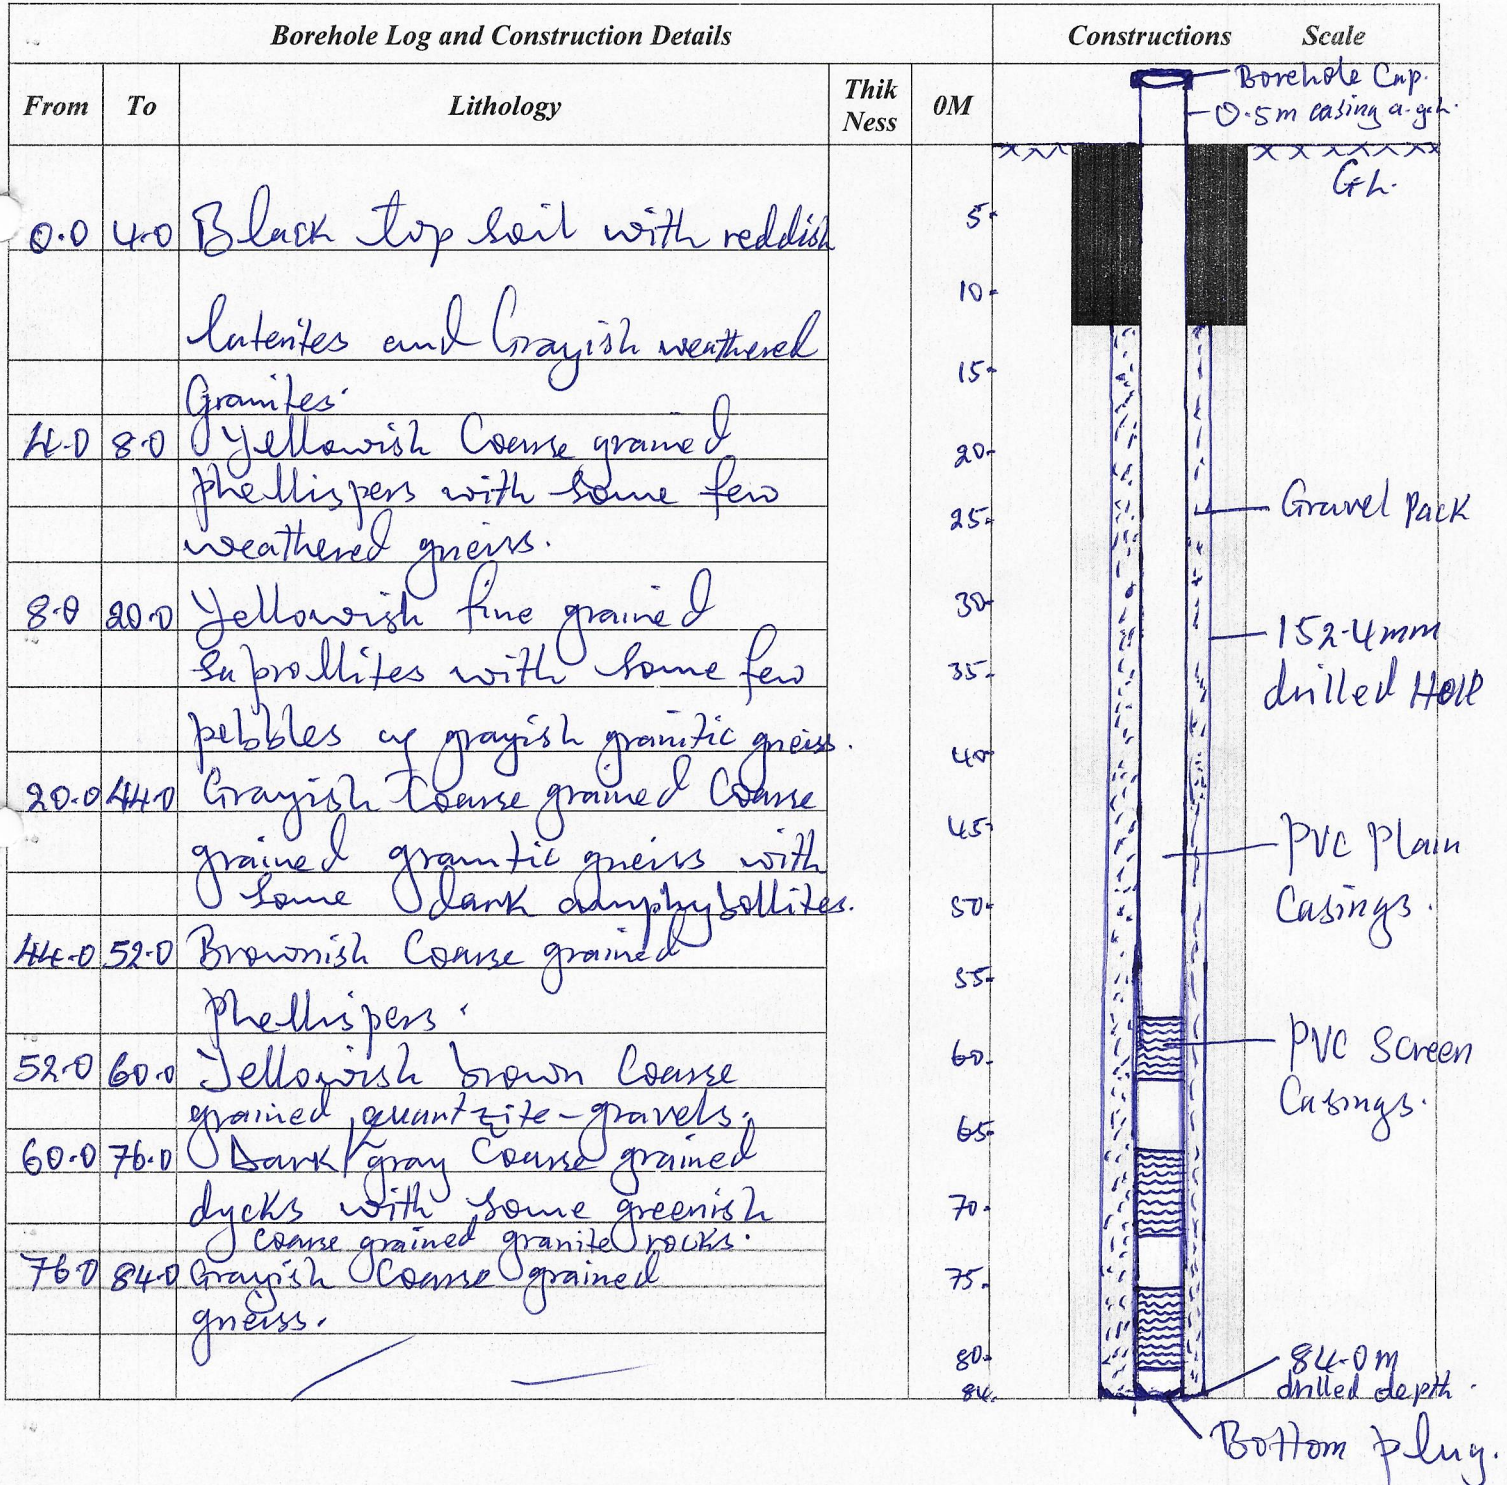 Borehole Log and Construction Details
Constructions Scale
From To Lithology Thik Ness 0M
Borehole Cap.
0.5m casing a.g.l.
G.L.
0.0 4.0 Black top soil with reddish
laterites and Grayish weathered
Granites.
4.0 8.0 Yellowish Coarse grained
phellispers with some few
weathered gneiss.
8.0 20.0 Yellowish fine grained
saprollites with some few
pebbles of grayish granitic gneiss.
20.0 44.0 Grayish Coarse grained Coarse
grained granitic gneiss with
some dark amphybollites.
44.0 52.0 Brownish Coarse grained
phellispers.
52.0 60.0 Yellowish brown Coarse
grained quartzite-gravels.
60.0 76.0 Dark/gray Coarse grained
dycks with some greenish
coarse grained granite rocks.
76.0 84.0 Grayish Coarse grained
gneiss.
5
10
15
20
25
30
35
40
45
50
55
60
65
70
75
80
84
Gravel Pack
152.4mm
drilled Hole
PVC Plain
Casings.
PVC Screen
Casings.
84.0m
drilled depth.
Bottom plug.